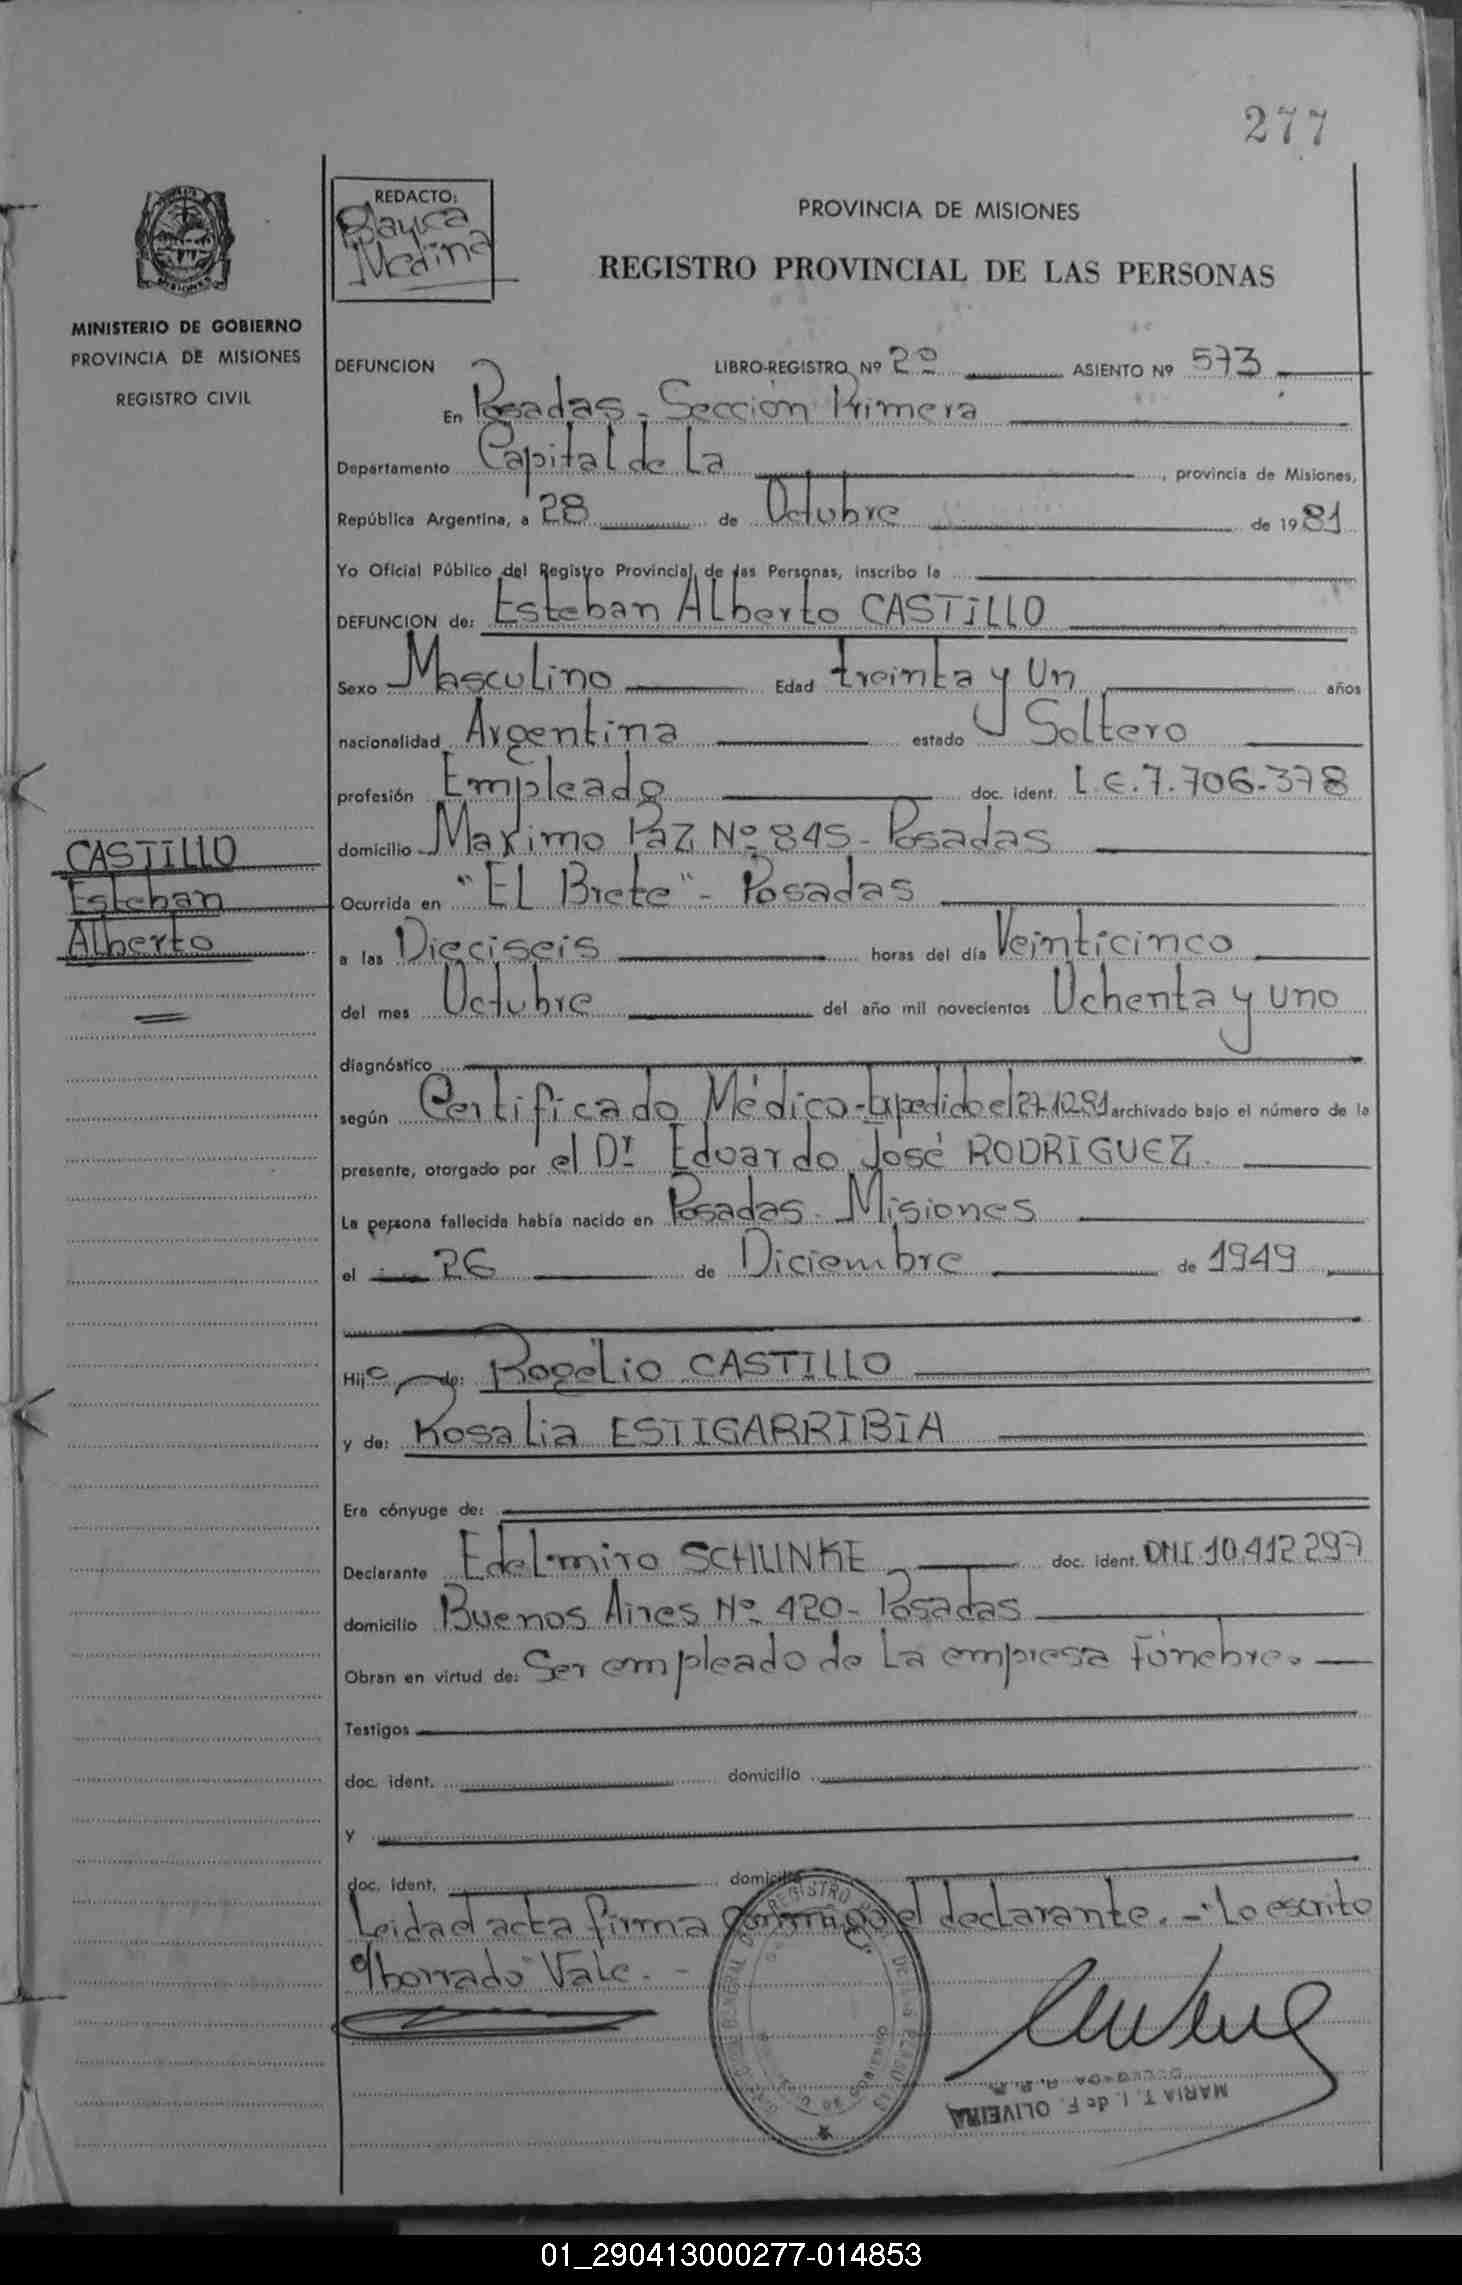 277
REDACTO:
Blanca
Medina
PROVINCIA DE MISIONES
REGISTRO PROVINCIAL DE LAS PERSONAS
MINISTERIO DE GOBIERNO
PROVINCIA DE MISIONES
REGISTRO CIVIL
DEFUNCION LIBRO-REGISTRO Nº 2º ASIENTO Nº 573
En Posadas - Sección Primera
Departamento Capital de La , provincia de Misiones,
República Argentina, a 28 de Octubre de 1981
Yo Oficial Público del Registro Provincial de las Personas, inscribo la
DEFUNCION de: Esteban Alberto CASTILLO
Sexo Masculino Edad treinta y Un años
nacionalidad Argentina estado Soltero
profesión Empleado doc. ident. L.E. 7.706.378
domicilio Maximo Paz Nº 845 - Posadas
CASTILLO
Esteban
Alberto
Ocurrida en "EL Brete" - Posadas
a las Dieciseis horas del día Veinticinco
del mes Octubre del año mil novecientos Ochenta y uno
diagnóstico
según Certificado Médico - Expedido el 27.10.81 archivado bajo el número de la
presente, otorgado por el Dr. Eduardo José RODRIGUEZ.
La persona fallecida había nacido en Posadas - Misiones
el 26 de Diciembre de 1949
Hijo de: Rogelio CASTILLO
y de: Rosalia ESTIGARRIBIA
Era cónyuge de:
Declarante Edelmiro SCHUNKE doc. ident. DNI. 10.412.297
domicilio Buenos Aires Nº 420 - Posadas
Obran en virtud de: Ser empleado de La empresa Fúnebre.
Testigos
doc. ident. domicilio
y
doc. ident. domicilio
Leida el acta firma conmigo el declarante. - "Lo escrito
s/borrado" Vale. -
MARIA T. I. de F. OLIVEIRA
DELEGADA R.P.P.
01_290413000277-014853